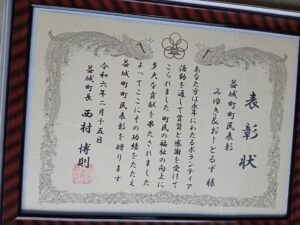 表彰状
益城町町民表彰
みゆき&おーどるず 様
あなた方は永年にわたるボランティア
活動を通して賞賛と感謝を受けて
こられました 町民の福祉の向上に
多大な貢献を果たされました
よってここにその功績をたたえ
益城町町民表彰を贈ります
令和六年二月十五日
益城町長 西村博則